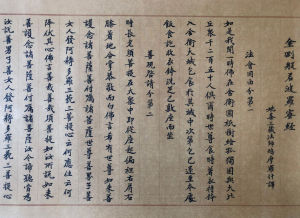 金剛般若波羅蜜經
姚秦三藏法師鳩摩羅什譯
法會因由分第一
如是我聞一時佛在舍衛國祇樹給孤獨園與大比
丘衆千二百五十人俱爾時世尊食時著衣持鉢
入舍衛大城乞食於其城中次第乞已還至本處
飯食訖收衣鉢洗足已敷座而坐
善現啓請分第二
時長老須菩提在大衆中即從座起偏袒右肩右
膝著地合掌恭敬而白佛言希有世尊如來善
護念諸菩薩善付囑諸菩薩世尊善男子善
女人發阿耨多羅三藐三菩提心云何應住云何
降伏其心佛言善哉善哉須菩提如汝所說如來
善護念諸菩薩善付囑諸菩薩汝今諦聽當爲
汝說善男子善女人發阿耨多羅三藐三菩提心